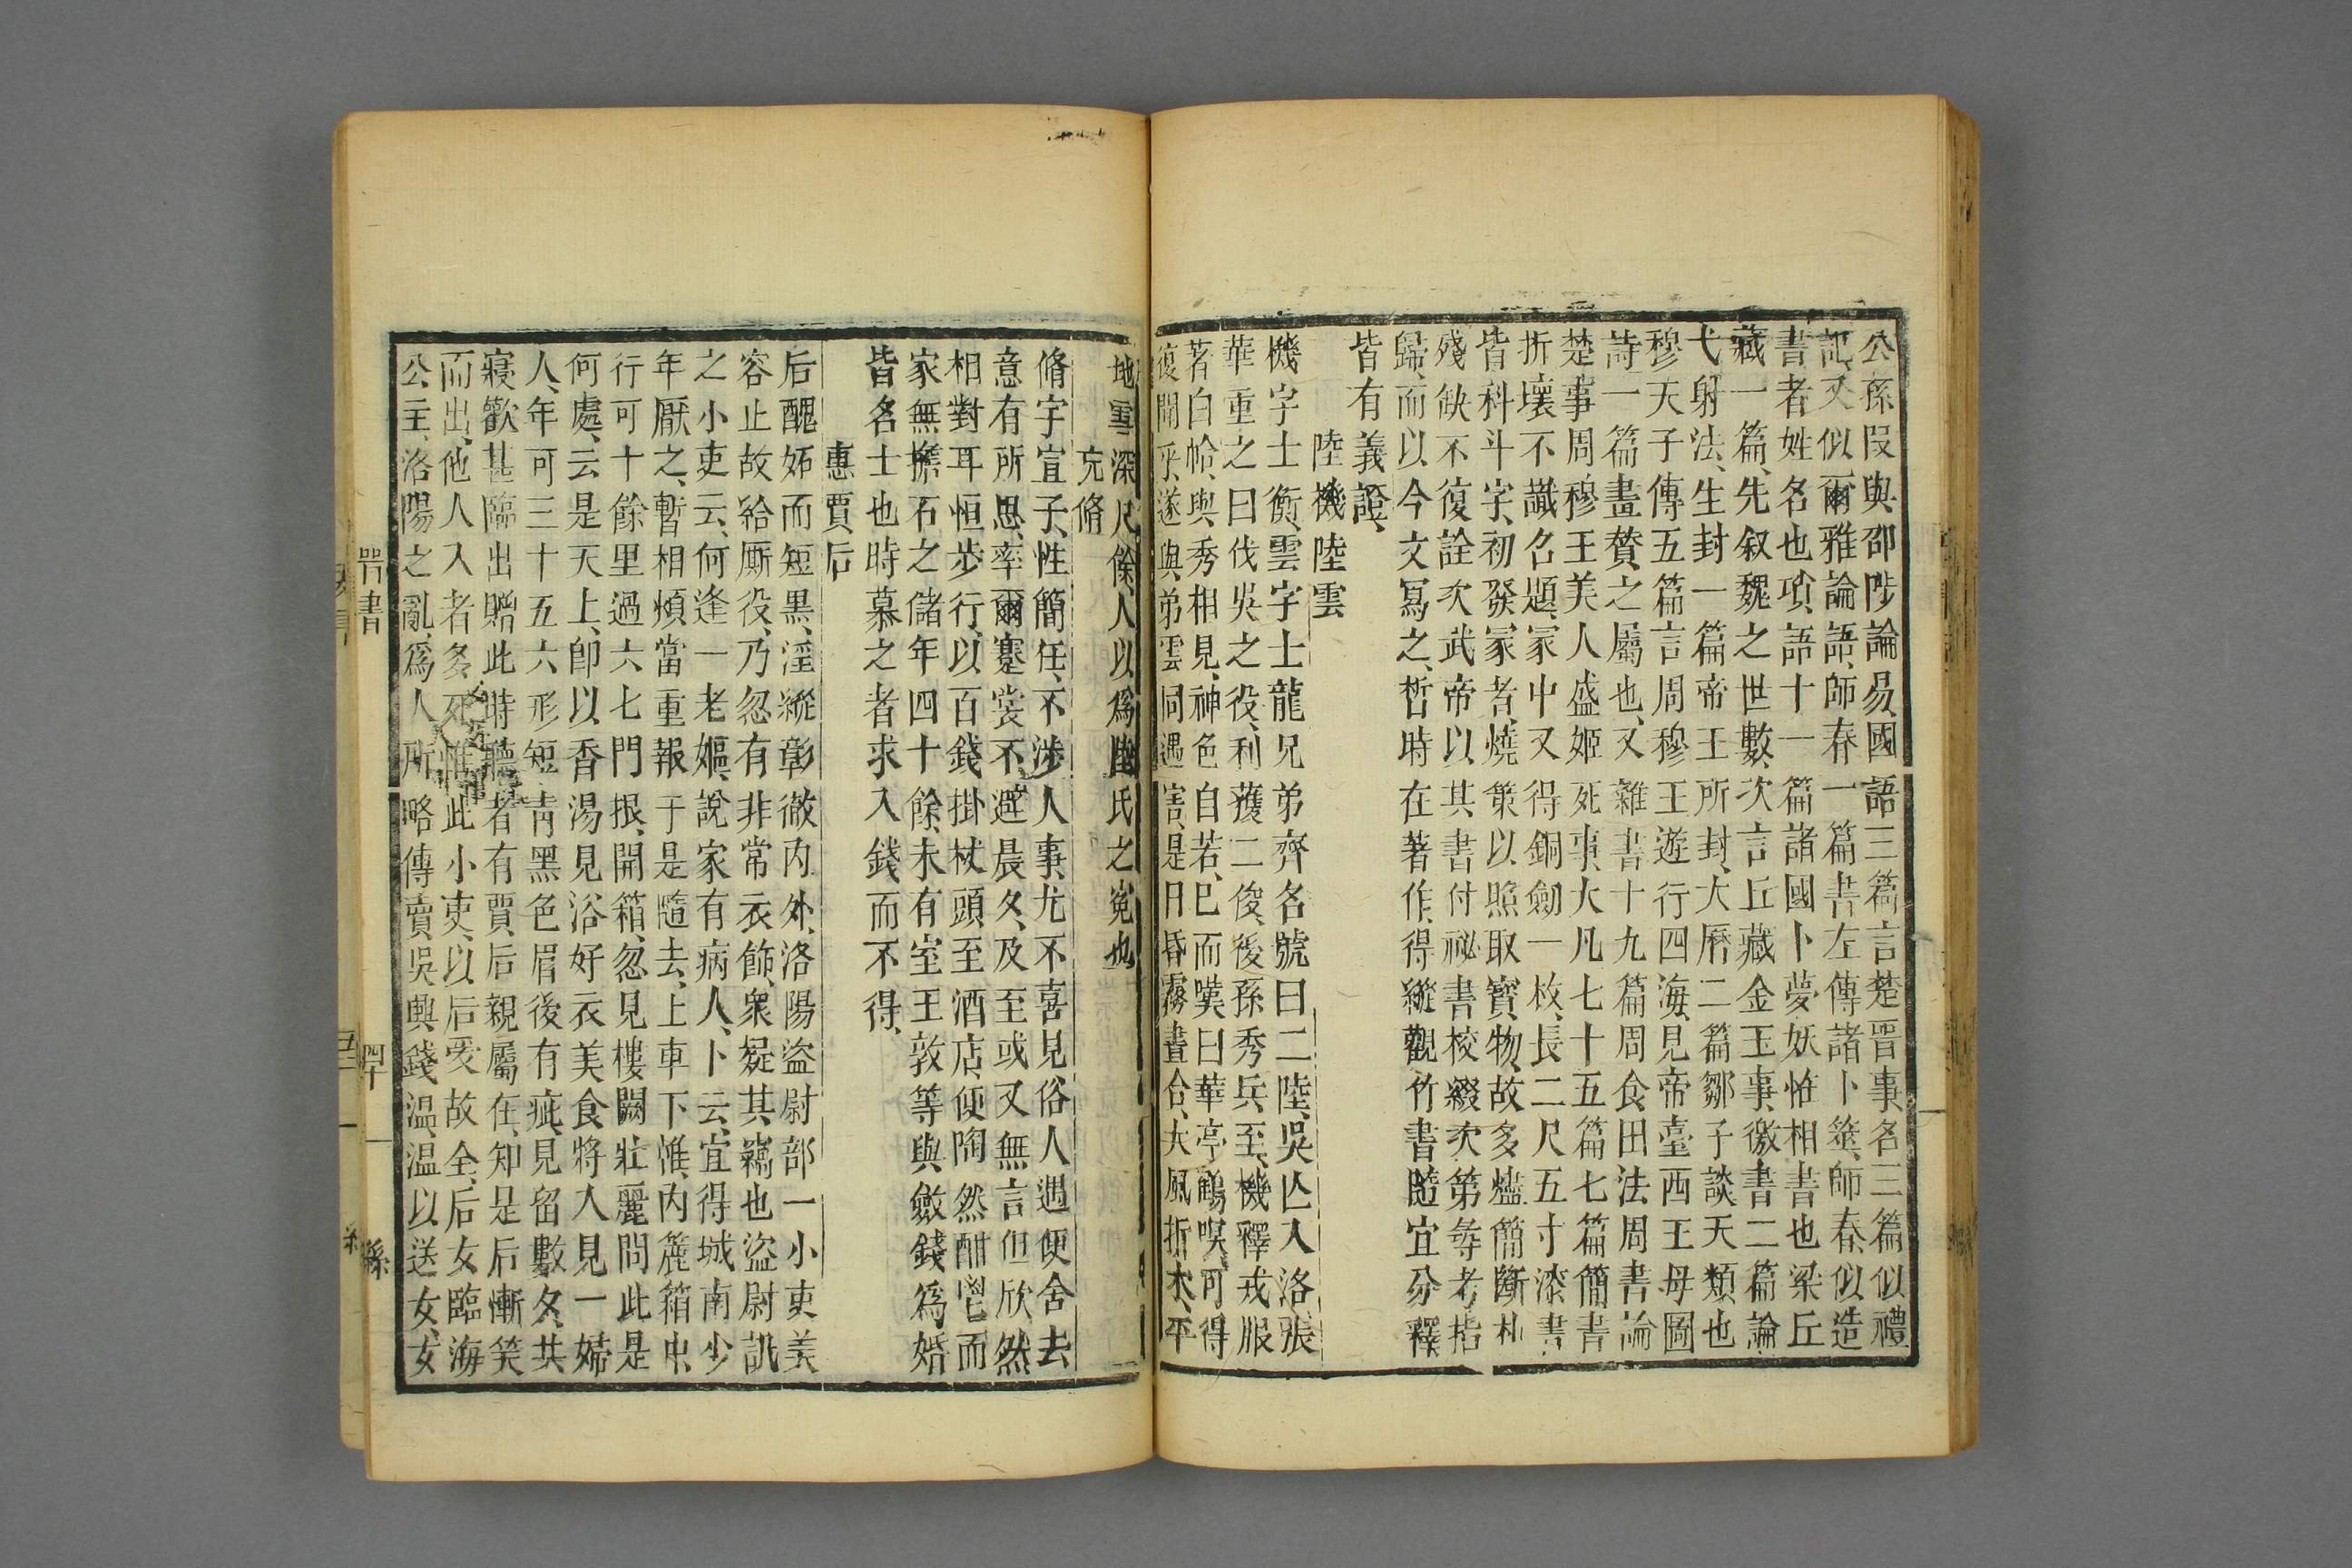 公孫段與邵陟論易、國語三篇言楚晉事、名三篇似禮
記、又似爾雅論語、師春一篇書左傳諸卜筮、師春似造
書者姓名也、瑣語十一篇諸國卜夢妖怪相書也梁丘
藏一篇、先叙魏之世數、次言丘藏金玉事、徼書二篇論
弋射法、生封一篇帝王所封、大曆二篇鄒子談天類也
穆天子傳五篇言周穆王遊行四海、見帝臺西王母圖
詩一篇畫贊之屬也、又雜書十九篇周食田法周書論
楚事周穆王美人盛姬死事、大凡七十五篇七篇簡書
折壞不識名題、冢中又得銅劒一枚、長二尺五寸漆書
皆科斗字、初發冢者、燒策以照取寶物、故多燼簡斷札
殘缺不復詮次武帝以其書付祕書校綴次第㝷考指
歸、而以今文冩之、晢時在著作、得縱觀竹書隨宜分釋
皆有義證、
陸機陸雲
機字士衡、雲字士龍兄弟齊名號曰二陸、吳亾入洛張
華重之曰伐吳之役、利獲二俊、後孫秀兵至、機釋戎服
著白帢、與秀相見、神色自若、巳而嘆曰華亭鶴唳、可得
復聞乎、遂與弟雲同遇害、是日昏霧晝合、大風折木、平
地雪深尺餘、人以爲陸氏之冤也
阮脩
脩字宣子、性簡任、不涉人事、尤不喜見俗人遇便舍去
意有所思、率爾褰裳不避晨夕、及至或又無言但欣然
相對耳恒步行、以百錢掛杖頭至酒店、便陶然酣鬯而
家無擔石之儲年四十餘、未有室王敦等與斂錢爲婚
皆名士也時慕之者求入錢而不得、
惠賈后
后醜妬而短黑、淫縱彰徹内外、洛陽盜尉部一小吏美
容止故給厮役、乃忽有非常衣飾、衆疑其竊也盜尉訊
之小吏云、何逢一老嫗、說家有病人、卜云、宜得城南少
年厭之、暫相煩當重報于是隨去、上車下帷、内簏箱中、
行可十餘里過六七門限、開箱、忽見樓闕壯麗問此是
何處、云是天上、卽以香湯見浴好衣美食將入見一婦
人、年可三十五六形短青黑色眉後有疵、見留數夕、共
寢歡甚臨出贈此時聽者有賈后親屬在、知是后慚笑
而出、他人入者多死惟此小吏、以后愛故全、后女臨海
公主、洛陽之亂、爲人所略傳賣、吳興錢温、温以送女、女
晉書
四十一